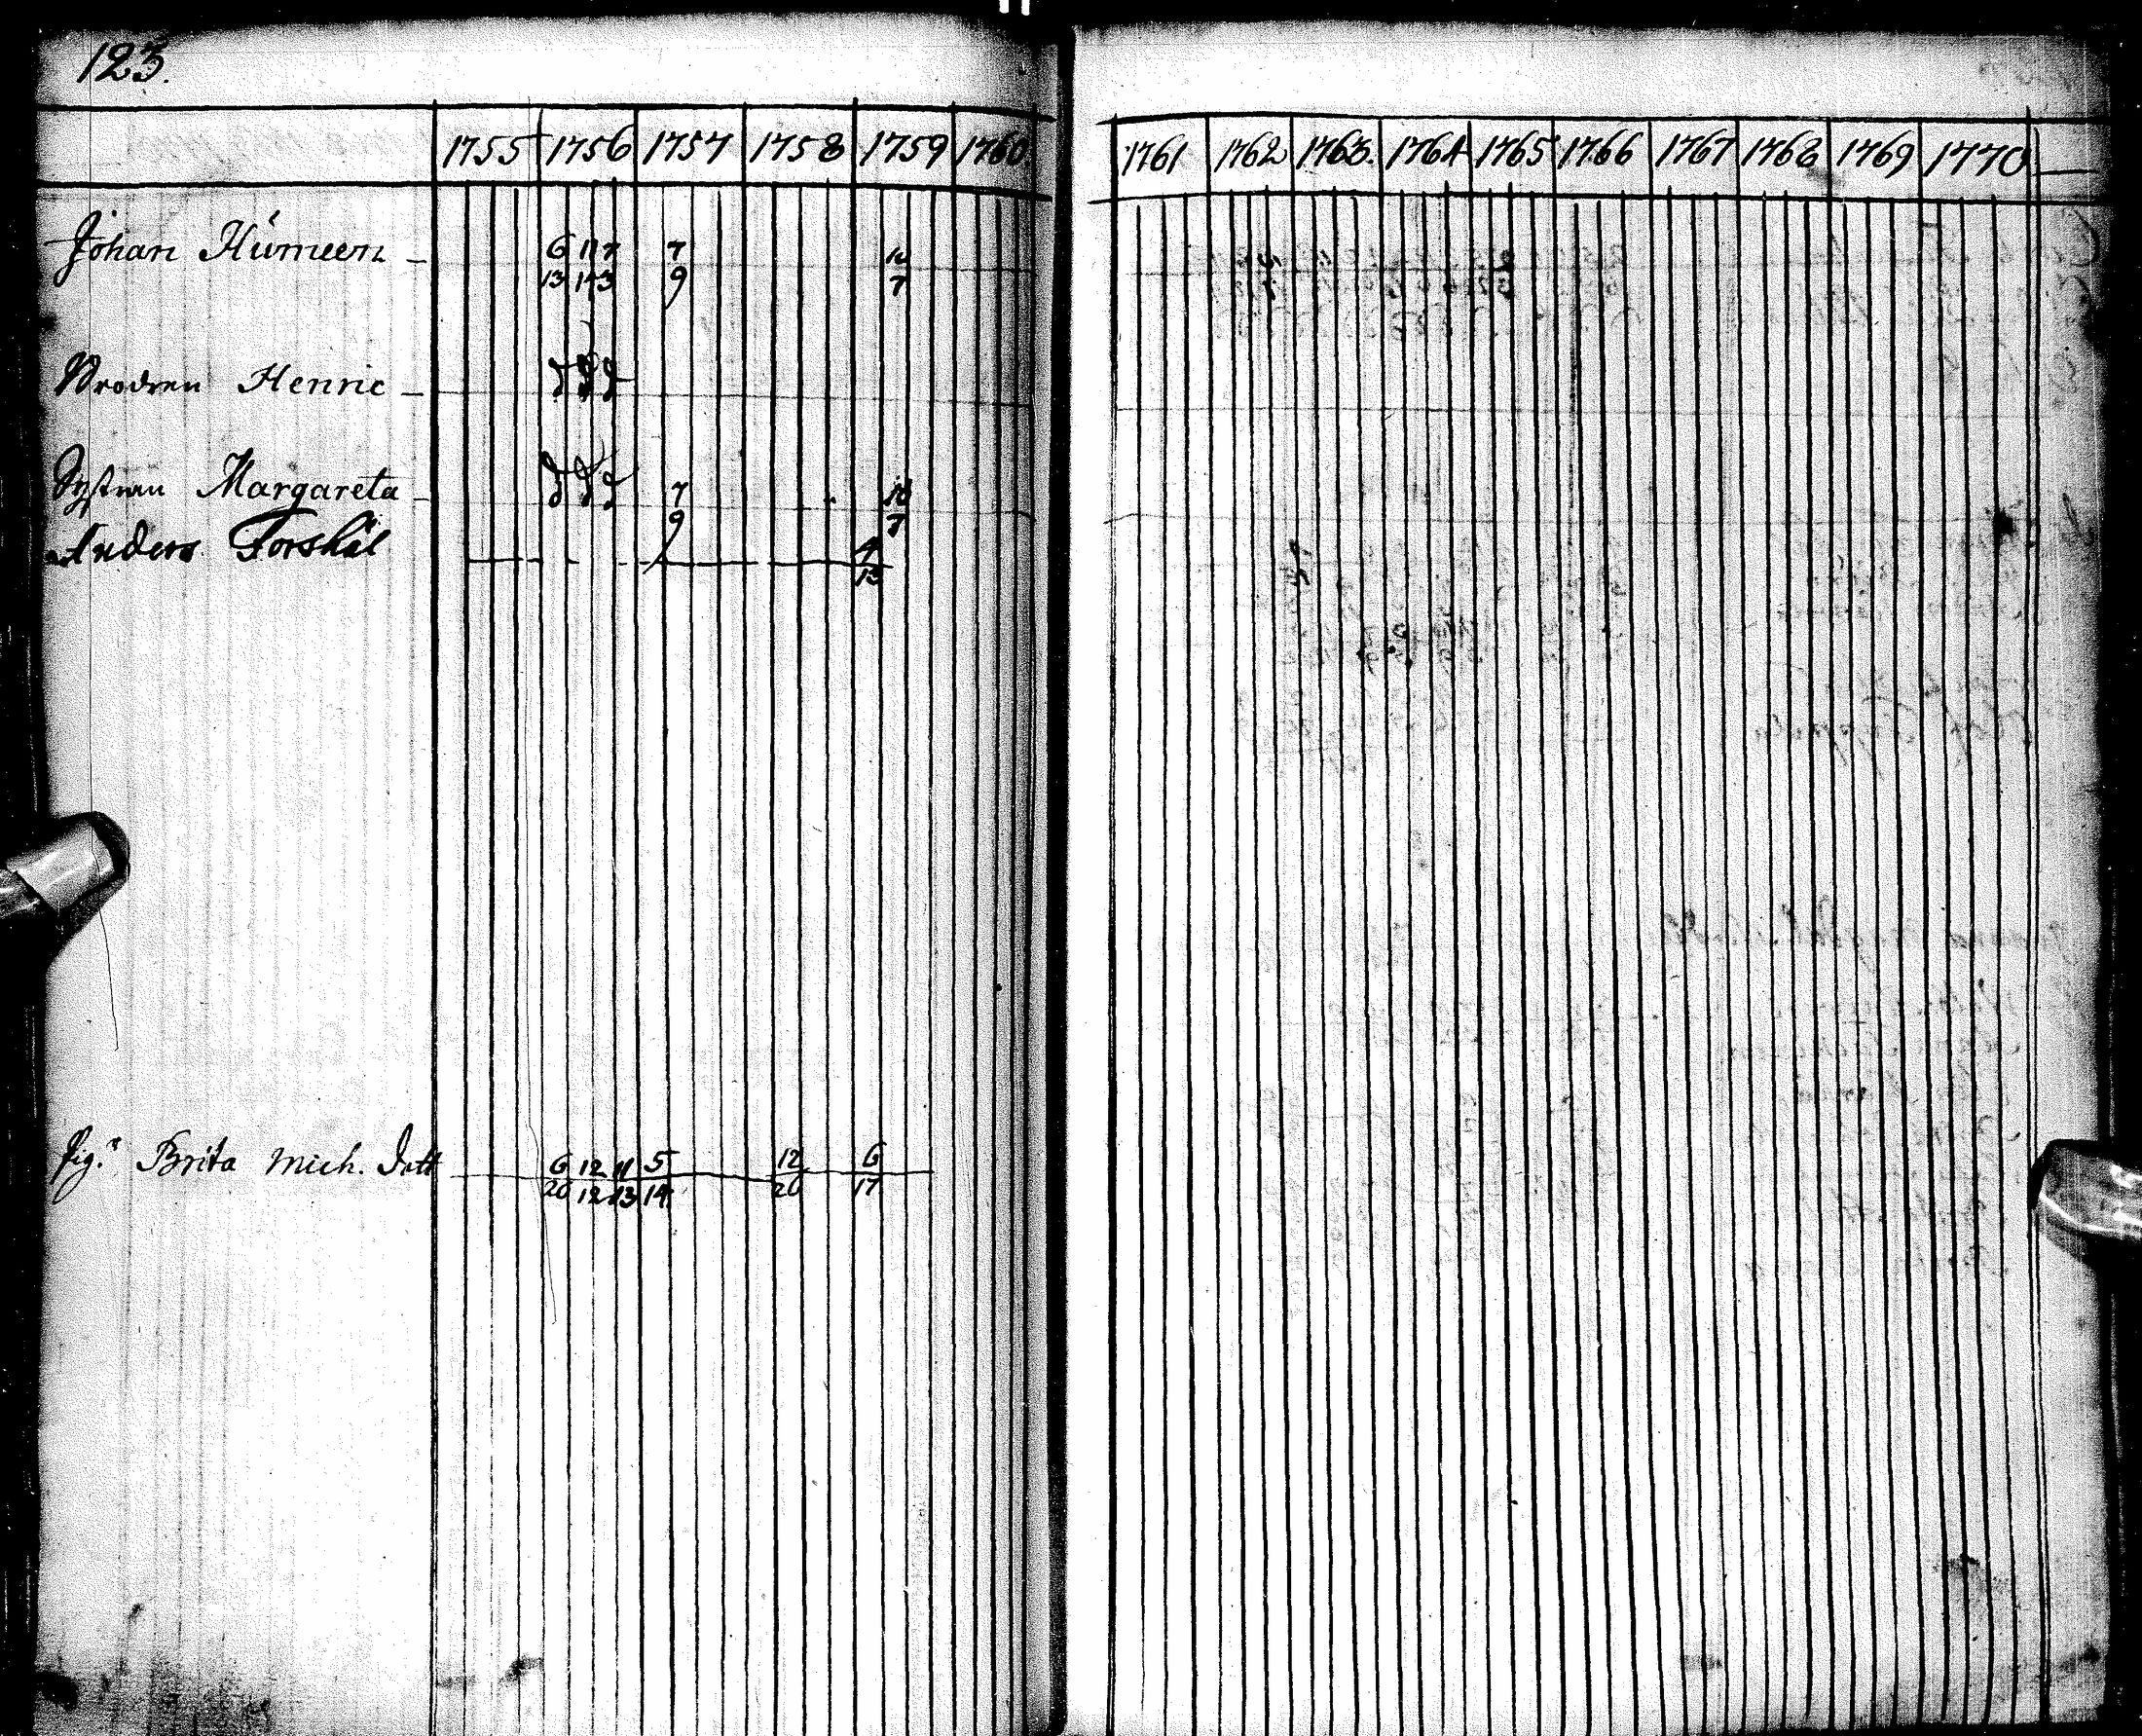 123.
1755 1756 1757 1758 1759 1760 1761 1762 1763. 1764 1765 1766 1767 1768 1769 1770
Johan Hümeen 6 11 7 7 10
13 14 3 9 7
Brodren Henric
Systran Margareta 7 10
9 7
Anders Forskål 4
13
Pig.n Brita Mich. Dott 6 12 11 5 12 6
20 12 13 14 20 17